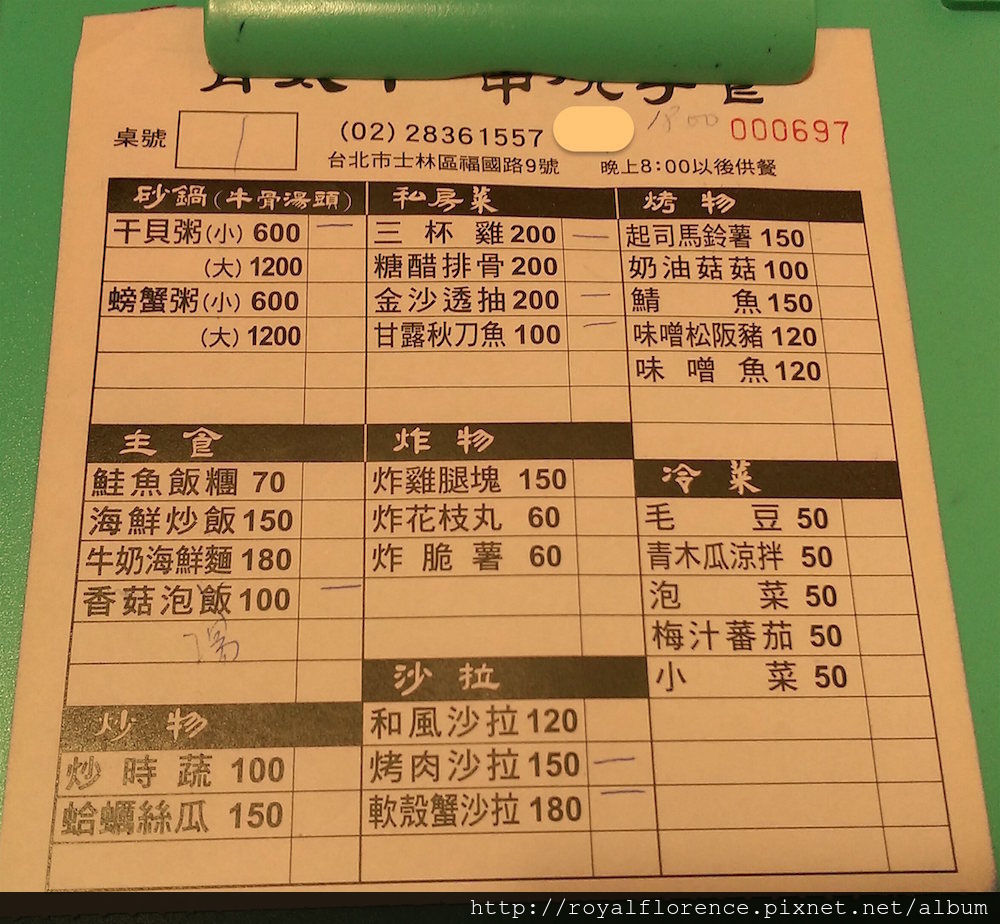 桌號 1
(02) 28361557
1800
000697
台北市士林區福國路9號 晚上8:00以後供餐
砂鍋(牛骨湯頭)
干貝粥(小) 600 一
(大) 1200
螃蟹粥(小) 600
(大) 1200
私房菜
三杯雞 200 一
糖醋排骨 200
金沙透抽 200 一
甘露秋刀魚 100 一
烤物
起司馬鈴薯 150
奶油菇菇 100
鯖魚 150
味噌松阪豬 120
味噌魚 120
主食
鮭魚飯糰 70
海鮮炒飯 150
牛奶海鮮麵 180
香菇泡飯 100 一
湯
炸物
炸雞腿塊 150
炸花枝丸 60
炸脆薯 60
冷菜
毛豆 50
青木瓜涼拌 50
泡菜 50
梅汁蕃茄 50
小菜 50
炒物
炒時蔬 100
蛤蠣絲瓜 150
沙拉
和風沙拉 120
烤肉沙拉 150 一
軟殼蟹沙拉 180 一
http://royalflorence.pixnet.net/album